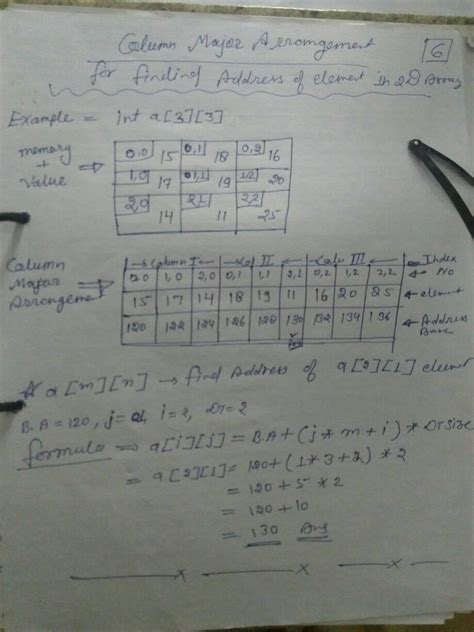 Column Major Arrangement [6]
for finding Address of element In 2D Array
Example = int a[3][3]
memory + value ⇒
0,0 15 0,1 18 0,2 16
1,0 17 1,1 19 1,2 20
2,0 14 2,1 11 2,2 25
Column Major Arrangement ⇒
Column I Col II Colu III ← Index No
0,0 1,0 2,0 0,1 1,1 2,1 0,2 1,2 2,2
15 17 14 18 19 11 16 20 25 ← element
120 122 124 126 128 130 132 134 136 ← Address Base
a[m][n] → find Address of a[2][1] element
B.A = 120, j= , i=2, DT=2
formula ⇒ a[i][j] = B.A + (j * m + i) * DT Size
= a[2][1] = 120 + (1 * 3 + 2) * 2
= 120 + 5 * 2
= 120 + 10
= 130 Ans
x x x